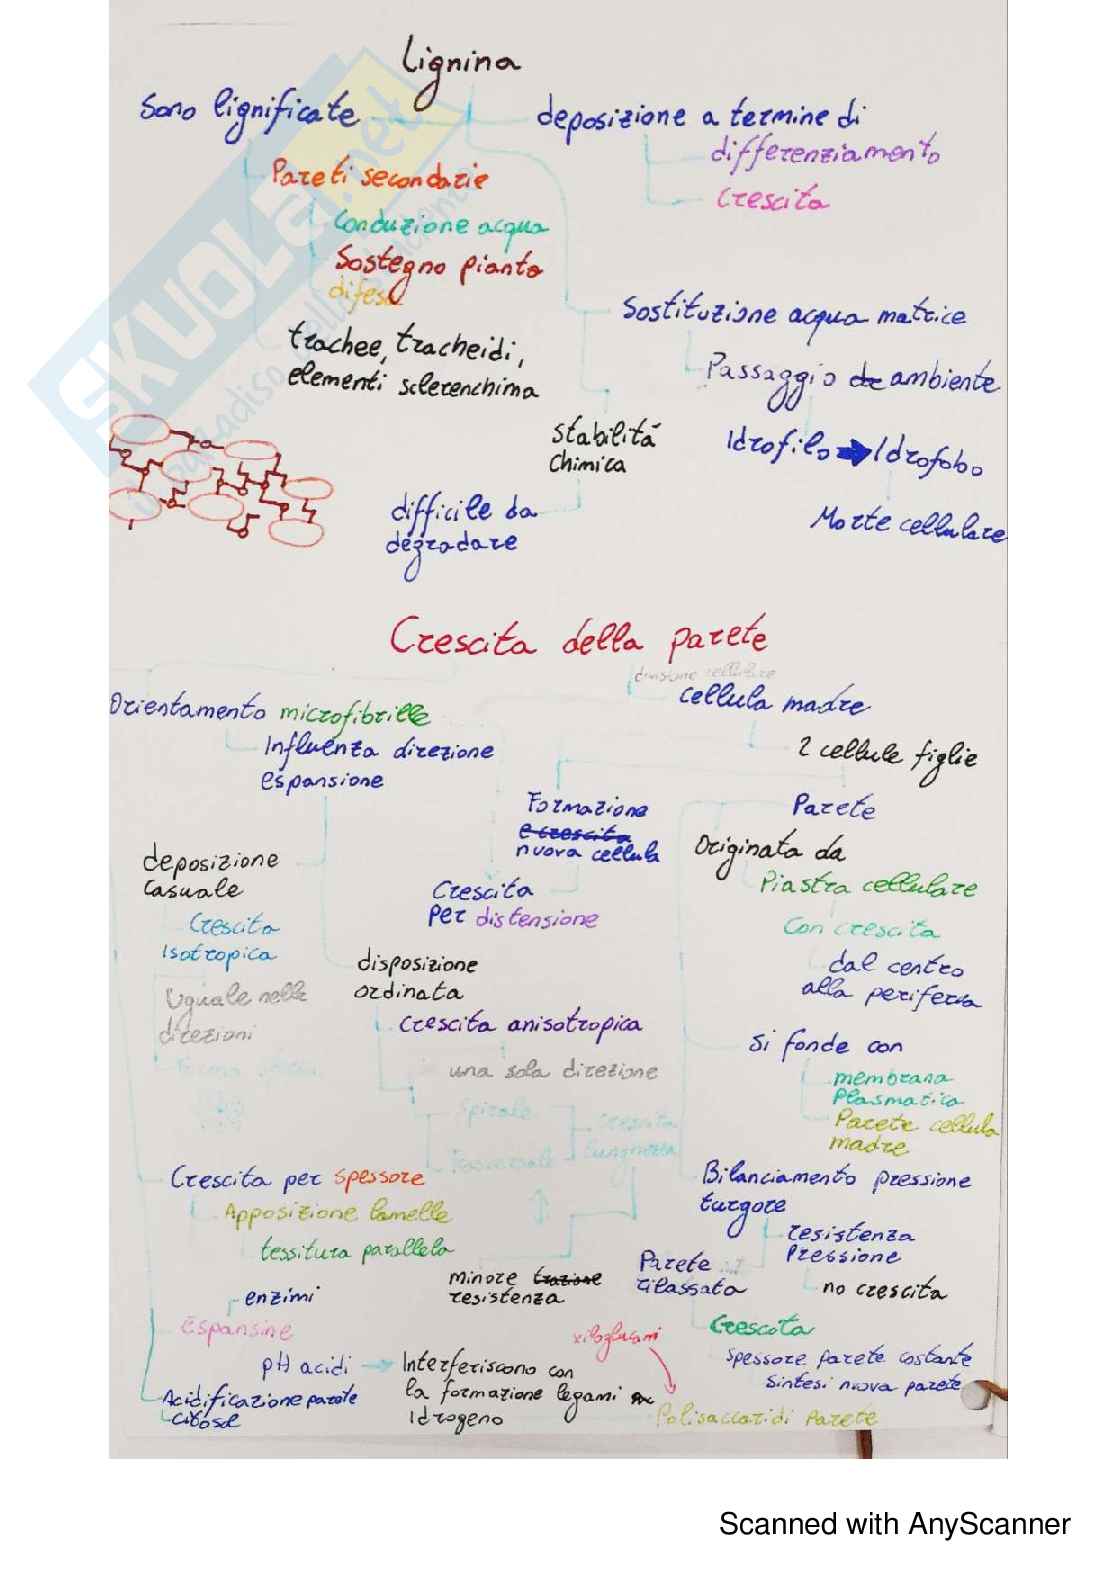 Lignina
Sono lignificate
deposizione a termine di
differenziamento
Crescita
Pareti secondarie
Conduzione acqua
Sostegno pianta
difesa
trachee, tracheidi,
elementi sclerenchima
Sostituzione acqua matrice
Passaggio da ambiente
Idrofilo → Idrofobo
Morte cellulare
Stabilità
chimica
difficile da
degradare
SKUOLA.net
Crescita della parete
divisione cellulare
cellula madre
2 cellule figlie
Orientamento microfibrille
Influenza direzione
espansione
Formazione
e crescita
nuova cellula
Parete
Originata da
Piastra cellulare
Con crescita
dal centro
alla periferia
deposizione
Casuale
Crescita
Isotropica
Uguale nelle
direzioni
Crescita
Per distensione
disposizione
ordinata
Crescita anisotropica
una sola direzione
Spirale
Trasversale
Crescita
lunghezza
Si fonde con
membrana
Plasmatica
Parete cellula
madre
Crescita per spessore
Apposizione lamelle
tessitura parallela
Bilanciamento pressione
turgore
resistenza
Pressione
no crescita
Parete
rilassata
minore trazione
resistenza
enzimi
espansine
pH acidi → Interferiscono con
la formazione legami
Idrogeno
xiloglucani
Polisaccaridi Parete
Acidificazione parete
citosol
Crescota
spessore parete costante
sintesi nuova parete
Scanned with AnyScanner